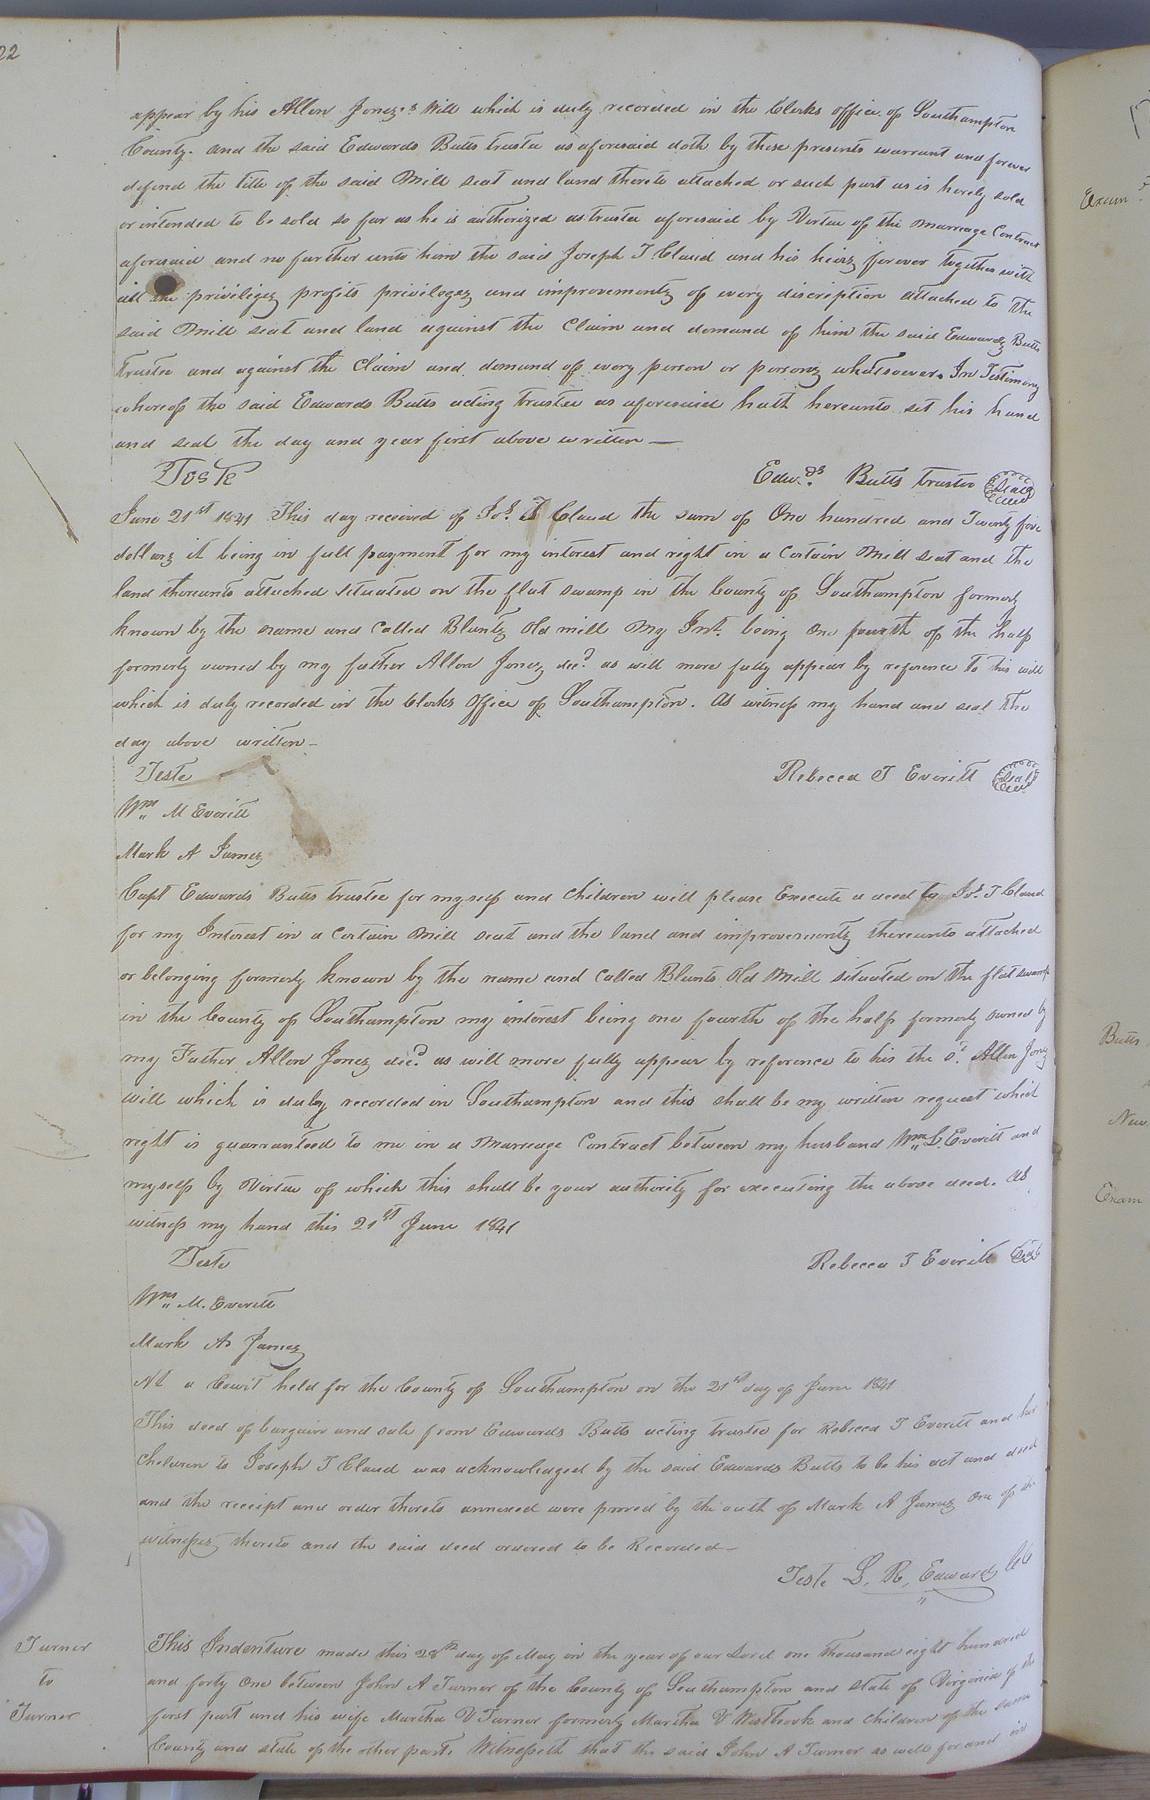 22
appear by his Allen Jones's Will which is duly recorded in the Clerks office of Southampton
County. and the said Edwards Butts trustee as aforesaid doth by these presents warrant and forever
defend the title of the said Mill seat and land thereto attached or such part as is hereby sold
or intended to be sold so far as he is authorized as trustee aforesaid by Virtue of the marriage Contract
aforesaid and no further unto him the said Joseph T Claud and his heirs forever together with
all the privileges profits privileges and improvements of every discription attached to the
said Mill seat and land against the Claim and demand of him the said Edwards Butts
trustee and against the Claim and demand of every person or persons whatsoever. In Testimony
whereof the said Edwards Butts acting trustee as aforesaid hath hereunto set his hand
and seal the day and year first above written —
Teste Edwds. Butts trustee Seal
June 21st 1841 This day received of Jos. T Claud the sum of One hundred and Twenty five
dollars it being in full payment for my interest and right in a Certain Mill seat and the
land thereunto attached situated on the flat swamp in the County of Southampton formerly
known by the name and Called Blunts Old mill My Int. being One fourth of the half
formerly owned by my father Allen Jones decd as will more fully appear by reference to his will
which is duly recorded in the Clerks Office of Southampton. As witness my hand and seal the
day above written —
Teste Rebecca T Everitt Seal
Wm M Everitt
Mark A James
Capt Edwards Butts trustee for myself and Children will please Execute a deed to Jos. T Claud
for my Interest in a Certain Mill seat and the land and improvements thereunto attached
or belonging formerly known by the name and Called Blunts Old Mill situated on the flat swamp
in the County of Southampton my interest being one fourth of the half formerly owned by
my Father Allen Jones decd as will more fully appear by reference to his the sd. Allen Jones
Will which is duly recorded in Southampton and this shall be my written request which
right is guarranteed to me in a Marriage Contract between my husband Wm C. Everitt and
myself by Virtue of which this shall be your authority for executing the above deed. As
witness my hand this 21st June 1841
Teste Rebecca T Everitt Seal
Wm M. Everitt
Mark A James
At a Court held for the County of Southampton on the 21st day of June 1841
This deed of bargain and sale from Edwards Butts acting trustee for Rebecca T Everitt and her
Children to Joseph T Claud was acknowledged by the said Edwards Butts to be his act and deed
and the receipt and order thereto annexed were proved by the oath of Mark A James One of the
witnesses thereto and the said deed ordered to be Recorded —
Teste L. R. Edwards CC
Turner
to
Turner
This Indenture made this 28th day of May in the year of our Lord one thousand eight hundred
and forty One between John A Turner of the County of Southampton and state of Virginia of the
first part and his wife Martha V Turner formerly Martha V Westbrook and children of the same
County and state of the other part. Witnesseth that the said John A Turner as well for and in
Exam
Butts
New
Exam